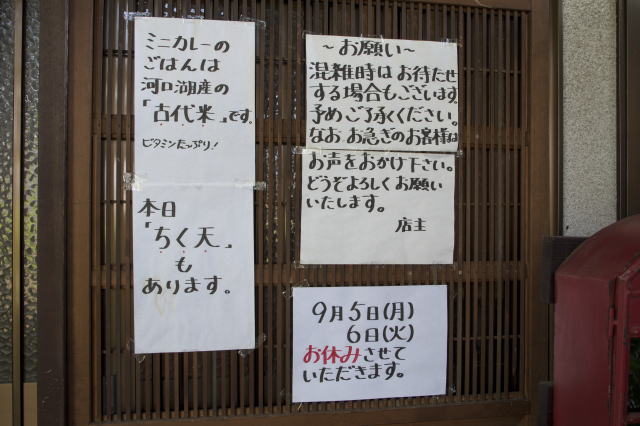 ミニカレーの
ごはんは
河口湖産の
「古代米」です。
ビタミンたっぷり!
本日
「ちく天」
も
あります。
～お願い～
混雑時はお待たせ
する場合もございます。
予めご了承ください。
なお お急ぎのお客様は
お声をおかけ下さい。
どうぞよろしくお願い
いたします。
店主
9月5日(月)
6日(火)
お休みさせて
いただきます。